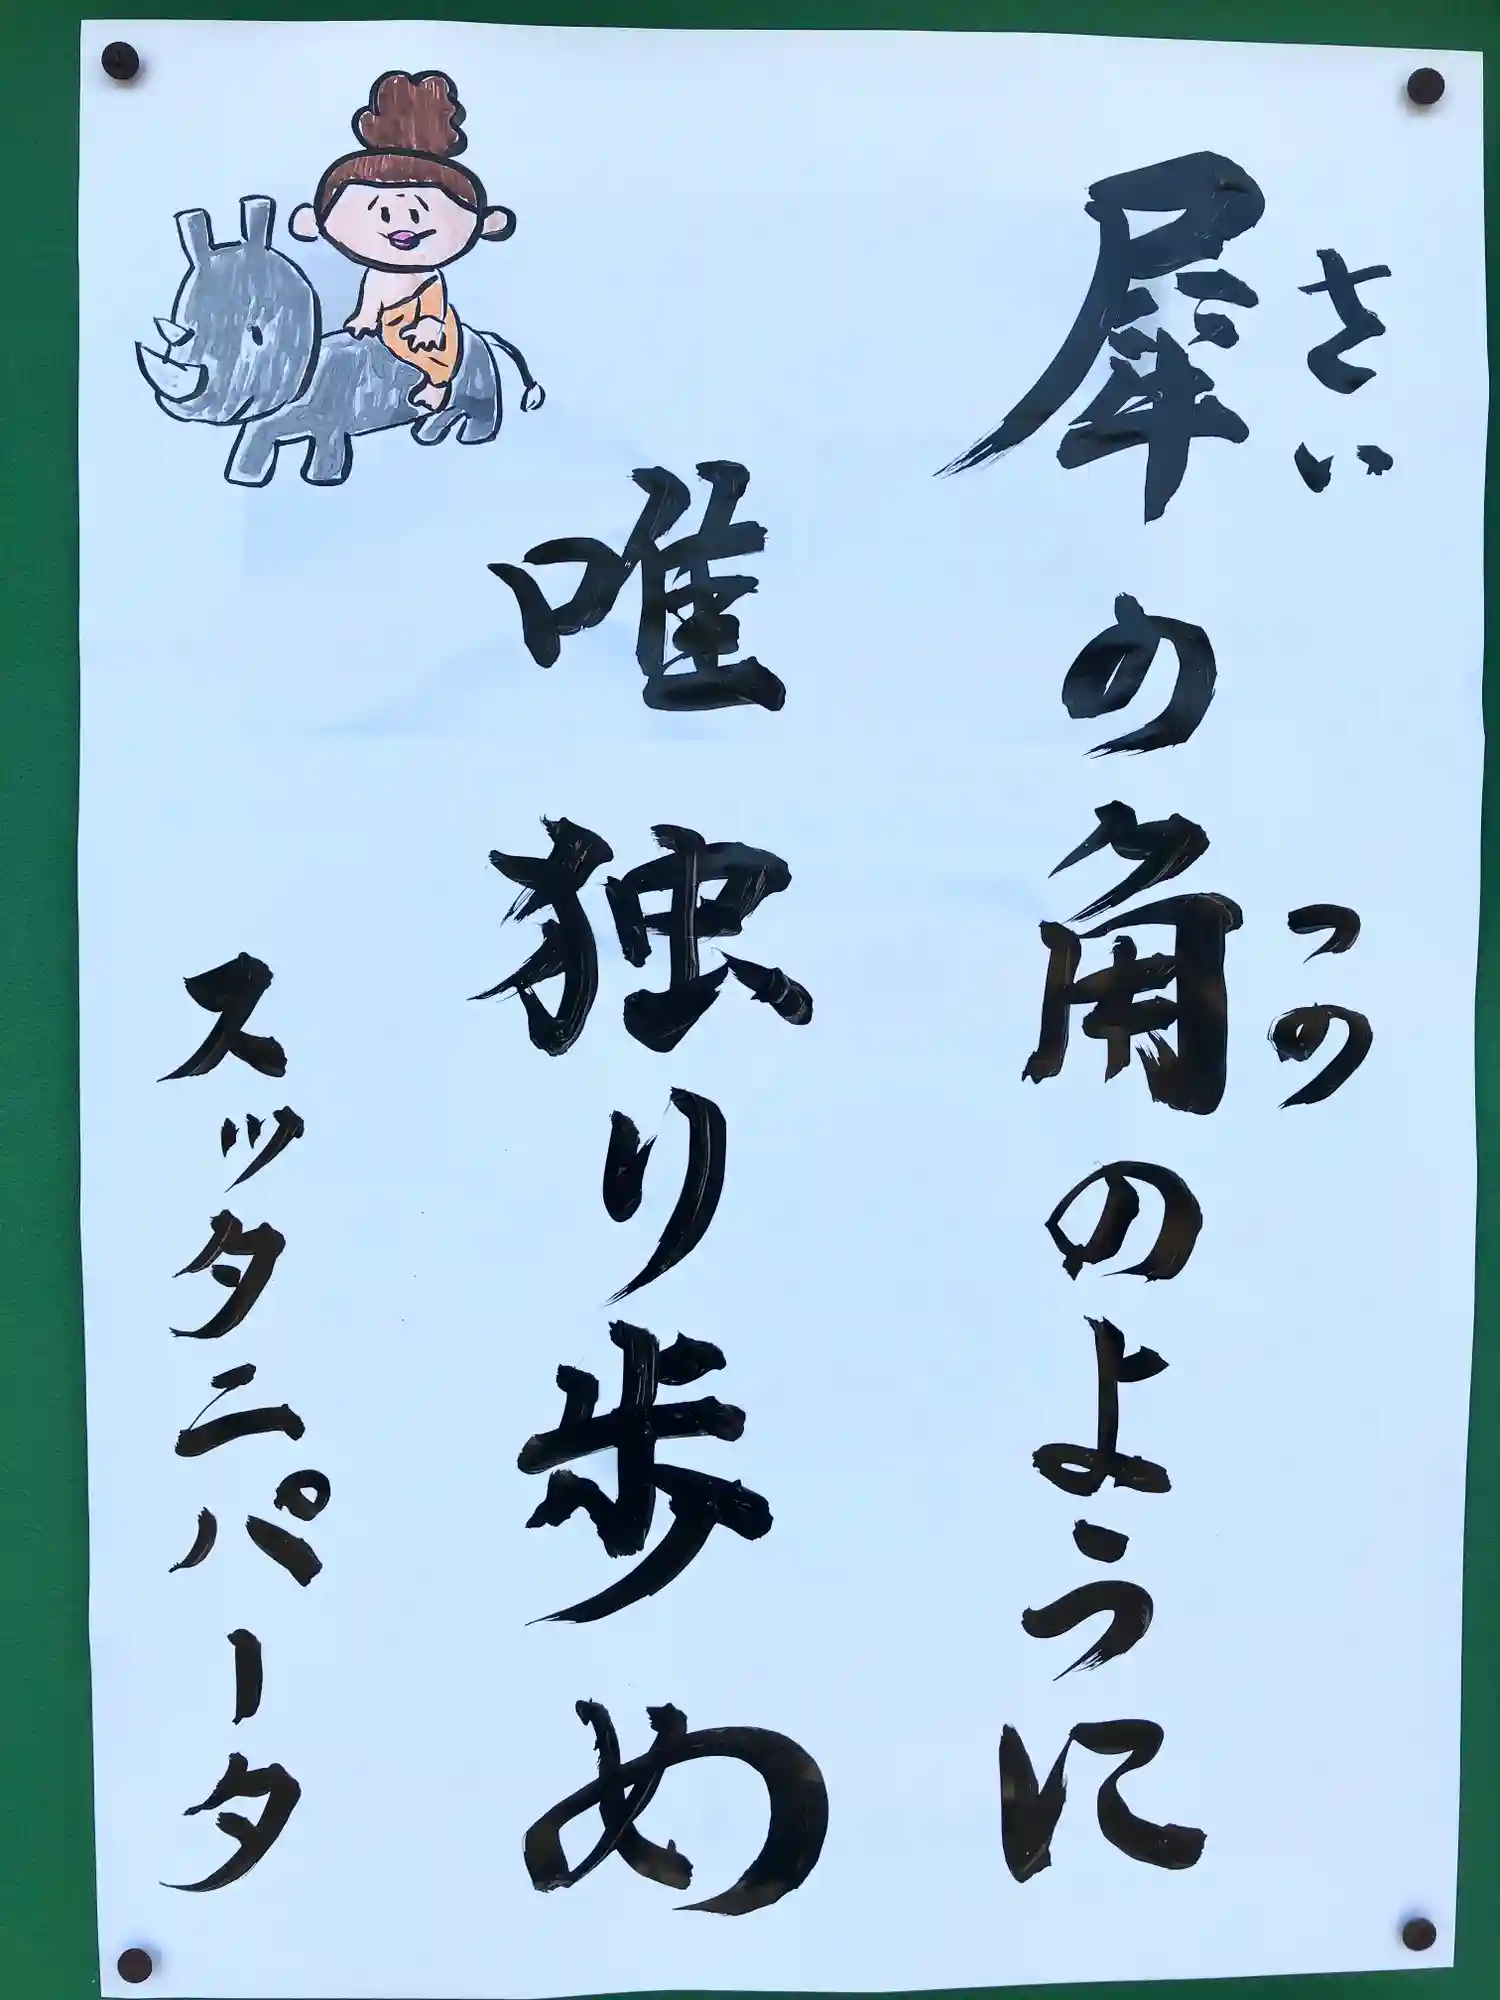 さい
つの
犀の角のように
唯独り歩め
スッタニパータ